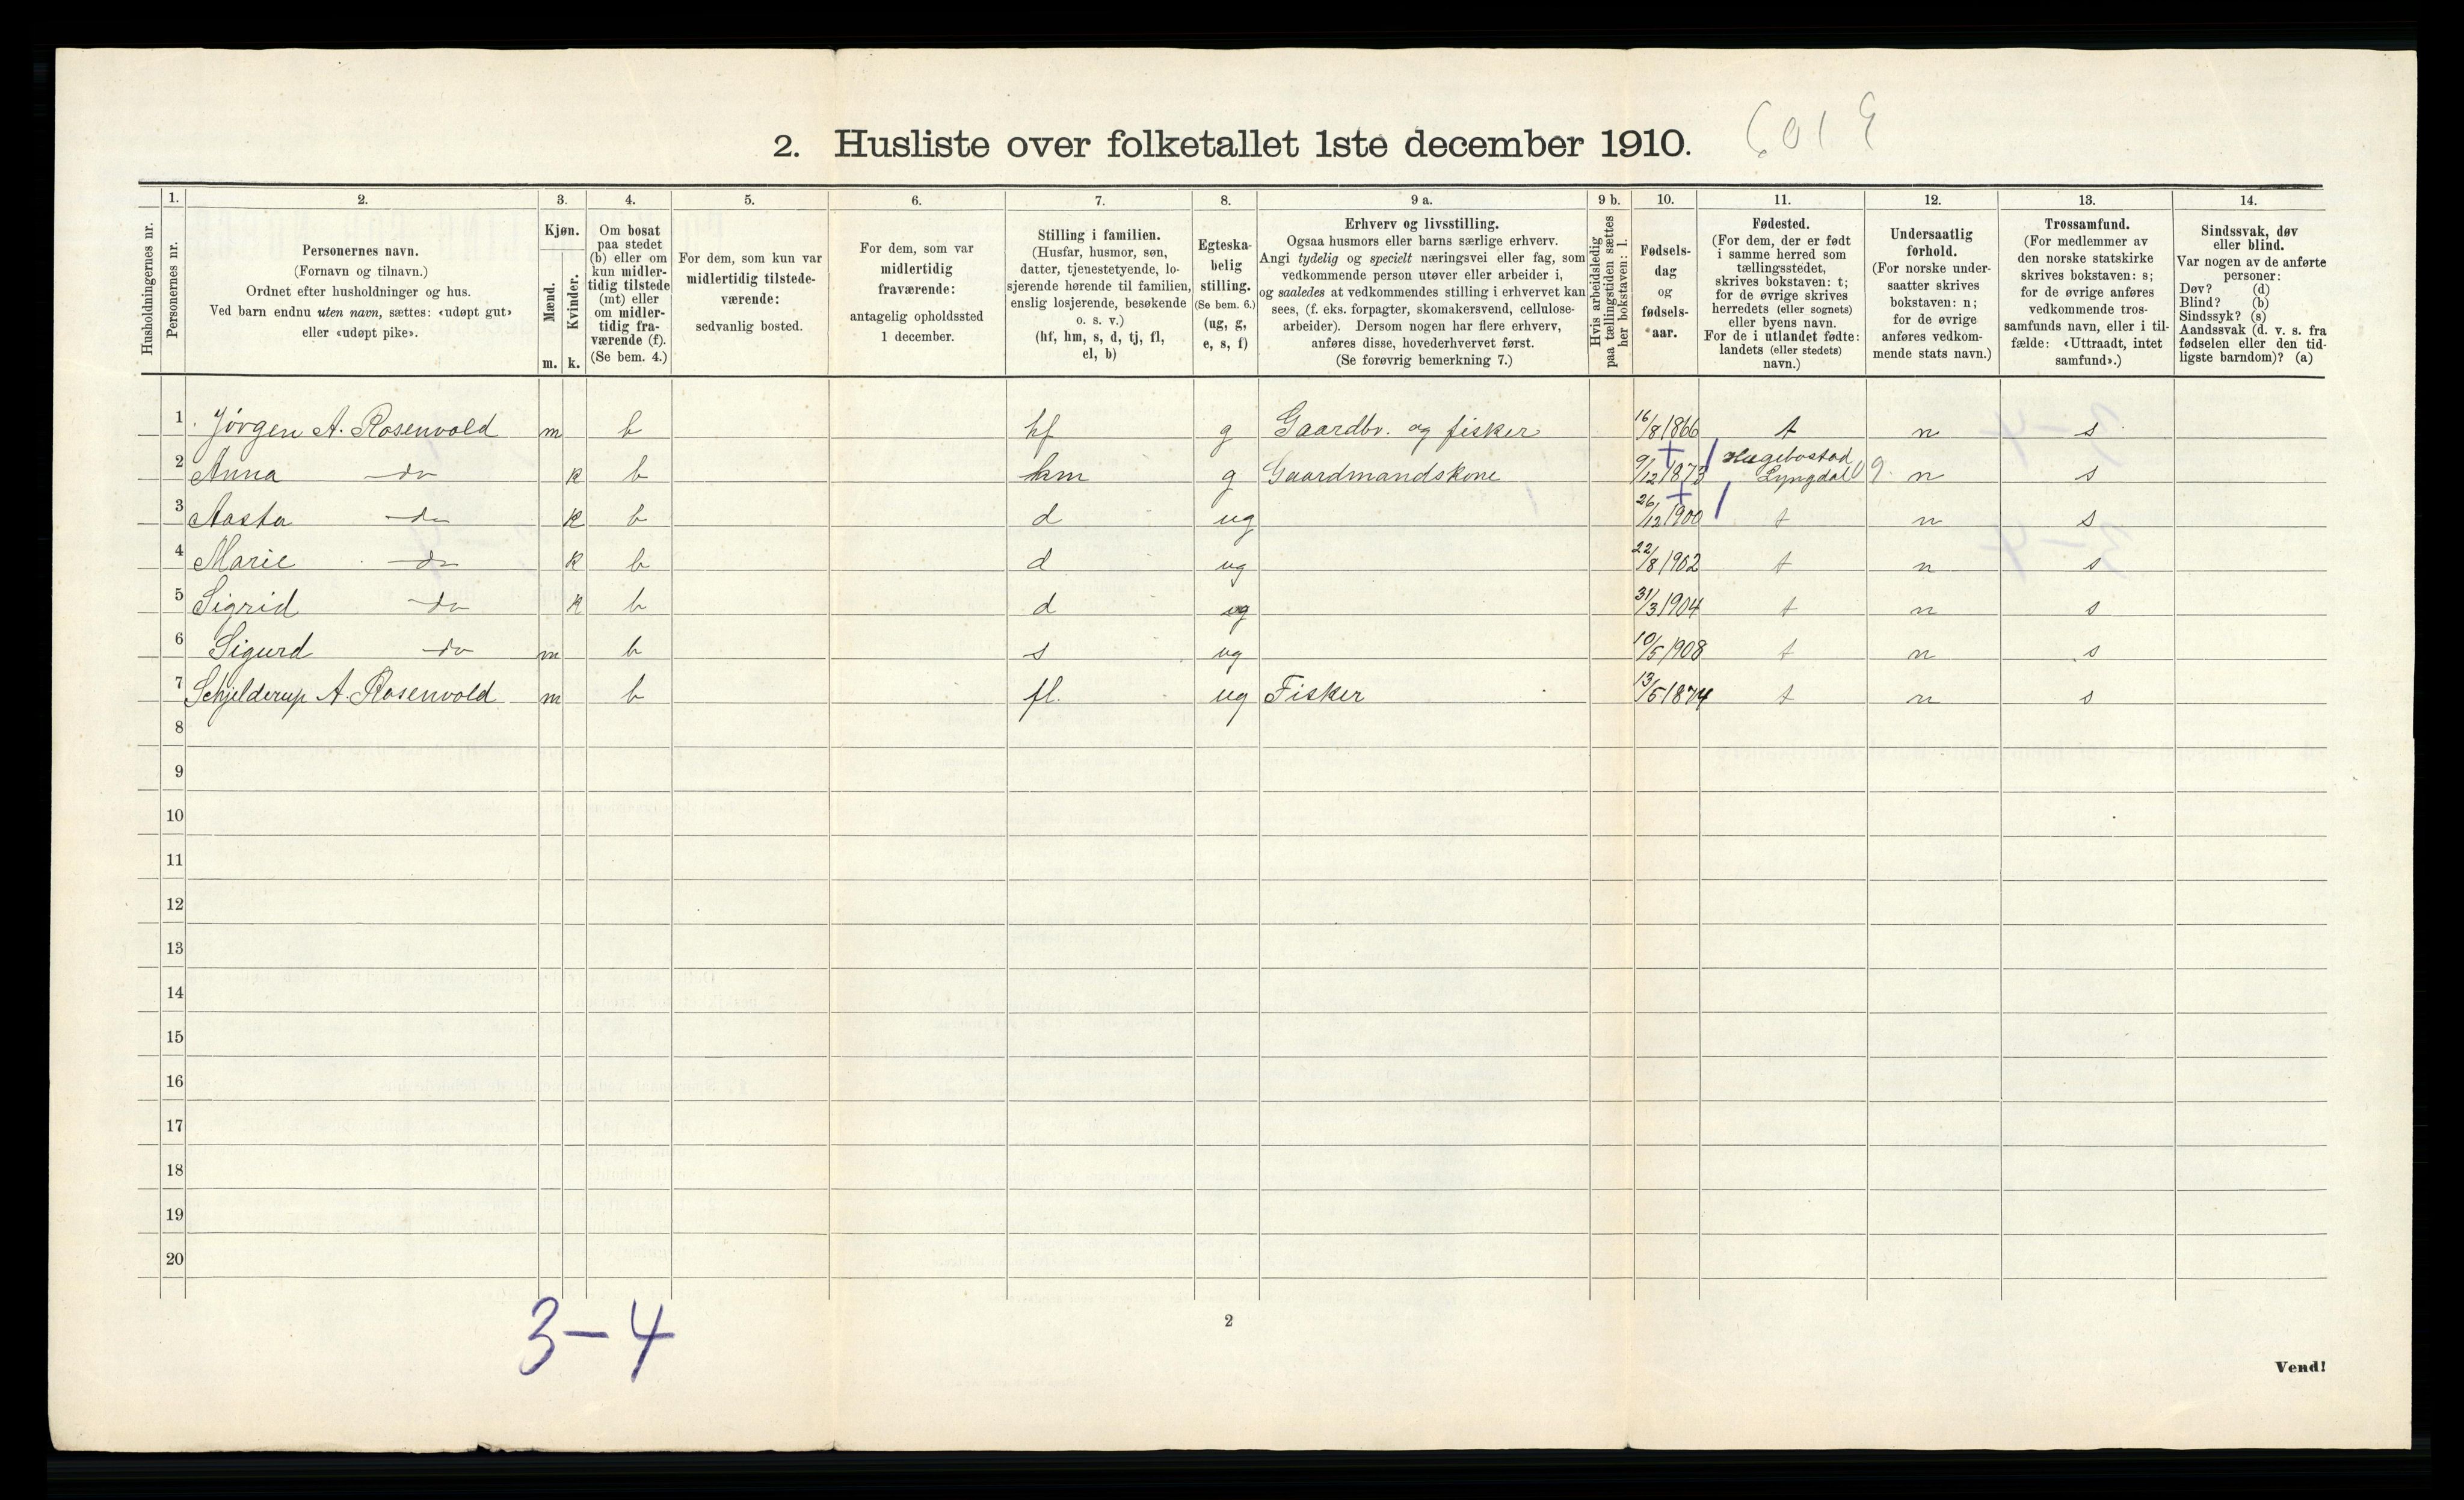 2. Husliste over folketallet 1ste december 1910.
1. 2. 3. 4. 5. 6. 7. 8. 9 a. 9 b. 10. 11. 12. 13. 14.
Husholdningernes nr.
Personernes nr.
Personernes navn.
(Fornavn og tilnavn.)
Ordnet efter husholdninger og hus.
Ved barn endnu uten navn, sættes: «udøpt gut»
eller «udøpt pike».
Kjøn.
Mænd.
Kvinder.
m. k.
Om bosat
paa stedet
(b) eller om
kun midler-
tidig tilstede
(mt) eller
om midler-
tidig fra-
værende (f).
(Se bem. 4.)
For dem, som kun var
midlertidig tilstede-
værende:
sedvanlig bosted.
For dem, som var
midlertidig
fraværende:
antagelig opholdssted
1 december.
Stilling i familien.
(Husfar, husmor, søn,
datter, tjenestetyende, lo-
sjerende hørende til familien,
enslig losjerende, besøkende
o. s. v.)
(hf, hm, s, d, tj, fl,
el, b)
Egteska-
belig
stilling.
(Se bem. 6.)
(ug, g,
e, s, f)
Erhverv og livsstilling.
Ogsaa husmors eller barns særlige erhverv.
Angi tydelig og specielt næringsvei eller fag, som
vedkommende person utøver eller arbeider i,
og saaledes at vedkommendes stilling i erhvervet kan
sees, (f. eks. forpagter, skomakersvend, cellulose-
arbeider). Dersom nogen har flere erhverv,
anføres disse, hovederhvervet først.
(Se forøvrig bemerkning 7.)
Hvis arbeidsledig
paa tællingstiden sættes
her bokstaven: l.
Fødsels-
dag
og
fødsels-
aar.
Fødested.
(For dem, der er født
i samme herred som
tællingsstedet,
skrives bokstaven: t;
for de øvrige skrives
herredets (eller sognets)
eller byens navn.
For de i utlandet fødte:
landets (eller stedets)
navn.)
Undersaatlig
forhold.
(For norske under-
saatter skrives
bokstaven: n;
for de øvrige
anføres vedkom-
mende stats navn.)
Trossamfund.
(For medlemmer av
den norske statskirke
skrives bokstaven: s;
for de øvrige anføres
vedkommende tros-
samfunds navn, eller i til-
fælde: «Uttraadt, intet
samfund».)
Sindssvak, døv
eller blind.
Var nogen av de anførte
personer:
Døv? (d)
Blind? (b)
Sindssyk? (s)
Aandssvak (d. v. s. fra
fødselen eller den tid-
ligste barndom)? (a)
1 Jörgen A. Rosenvold m b hf g Gaardbr. og fisker 16/8 1866 t n s
2 Anna do k b hm g Gaardmandskone 9/12 1873 Hægebostad Lyngdal n s
3 Aasta do k b d ug 26/12 1900 t n s
4 Marie do k b d ug 22/8 1902 t n s
5 Sigrid do k b d ug 31/3 1904 t n s
6 Sigurd do m b s ug 10/5 1908 t n s
7 Schjelderup A. Rosenvold m b fl. ug Fisker 13/5 1874 t n s
8
9
10
11
12
13
14
15
16
17
18
19
20
3-4
2
Vend!